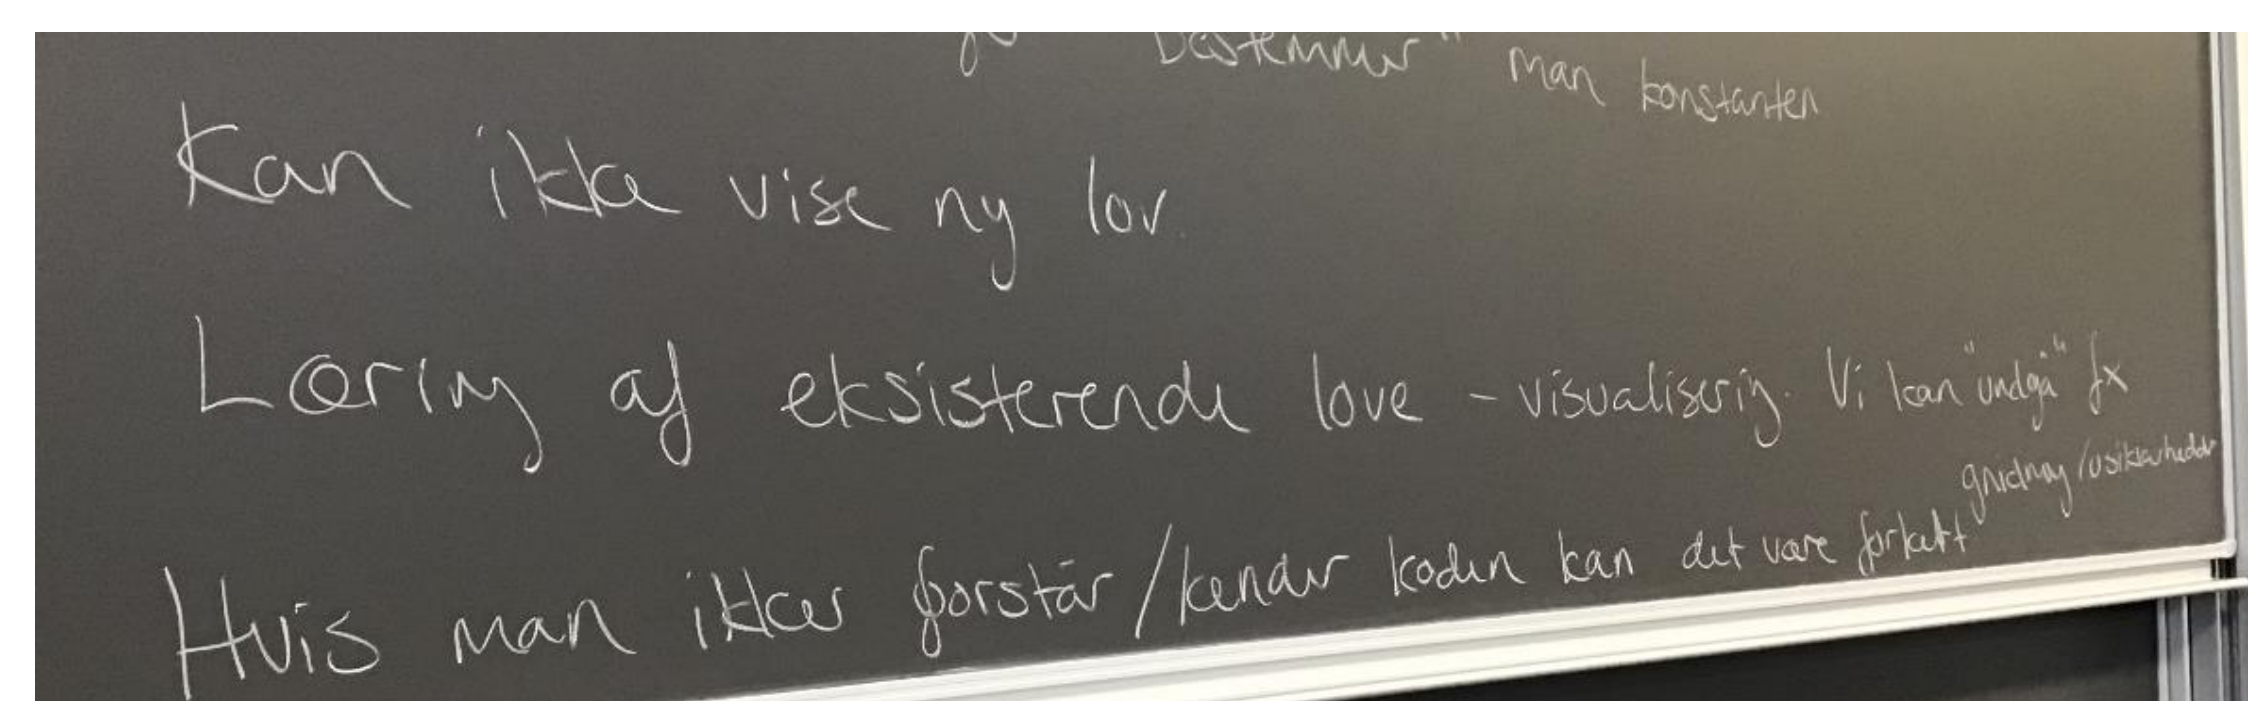 bestemmer" man konstanten
Kan ikke vise ny lov.
Læring af eksisterende love - visualisering. Vi kan "undgå" fx
gnidning/usikkerheder
Hvis man ikker forstår/kender koden kan det være forkert